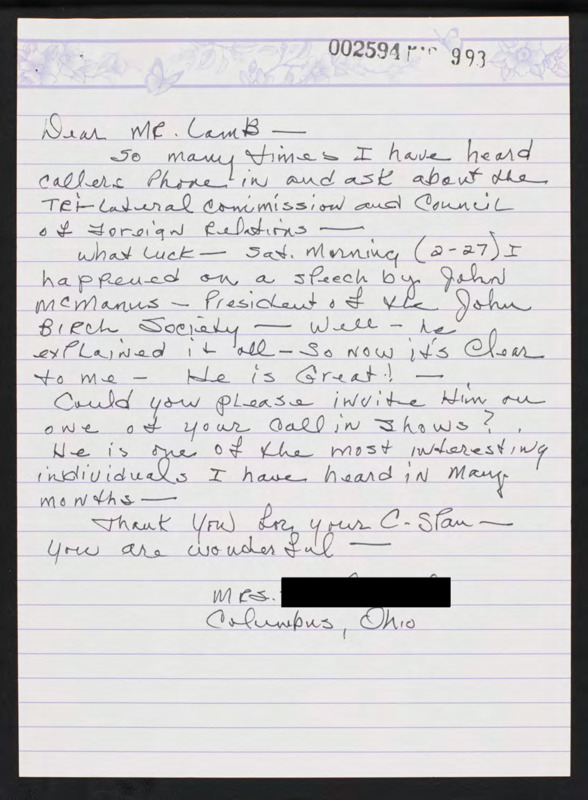 002594 993
Dear MR. Lamb —
So many times I have heard
callers Phone in and ask about the
TRi-Lateral Commission and Council
of Foreign Relations —
What Luck — Sat. Morning (2-27) I
happened on a speech by John
McManus – President of the John
BIRCH Society — Well – he
explained it all – So now it's Clear
to me – He is Great! —
Could you please invite Him on
one of your Call in Shows?
He is one of the most interesting
individuals I have heard in many
months —
Thank You for your C-Span —
you are wonderful —
MRS.
Columbus, Ohio